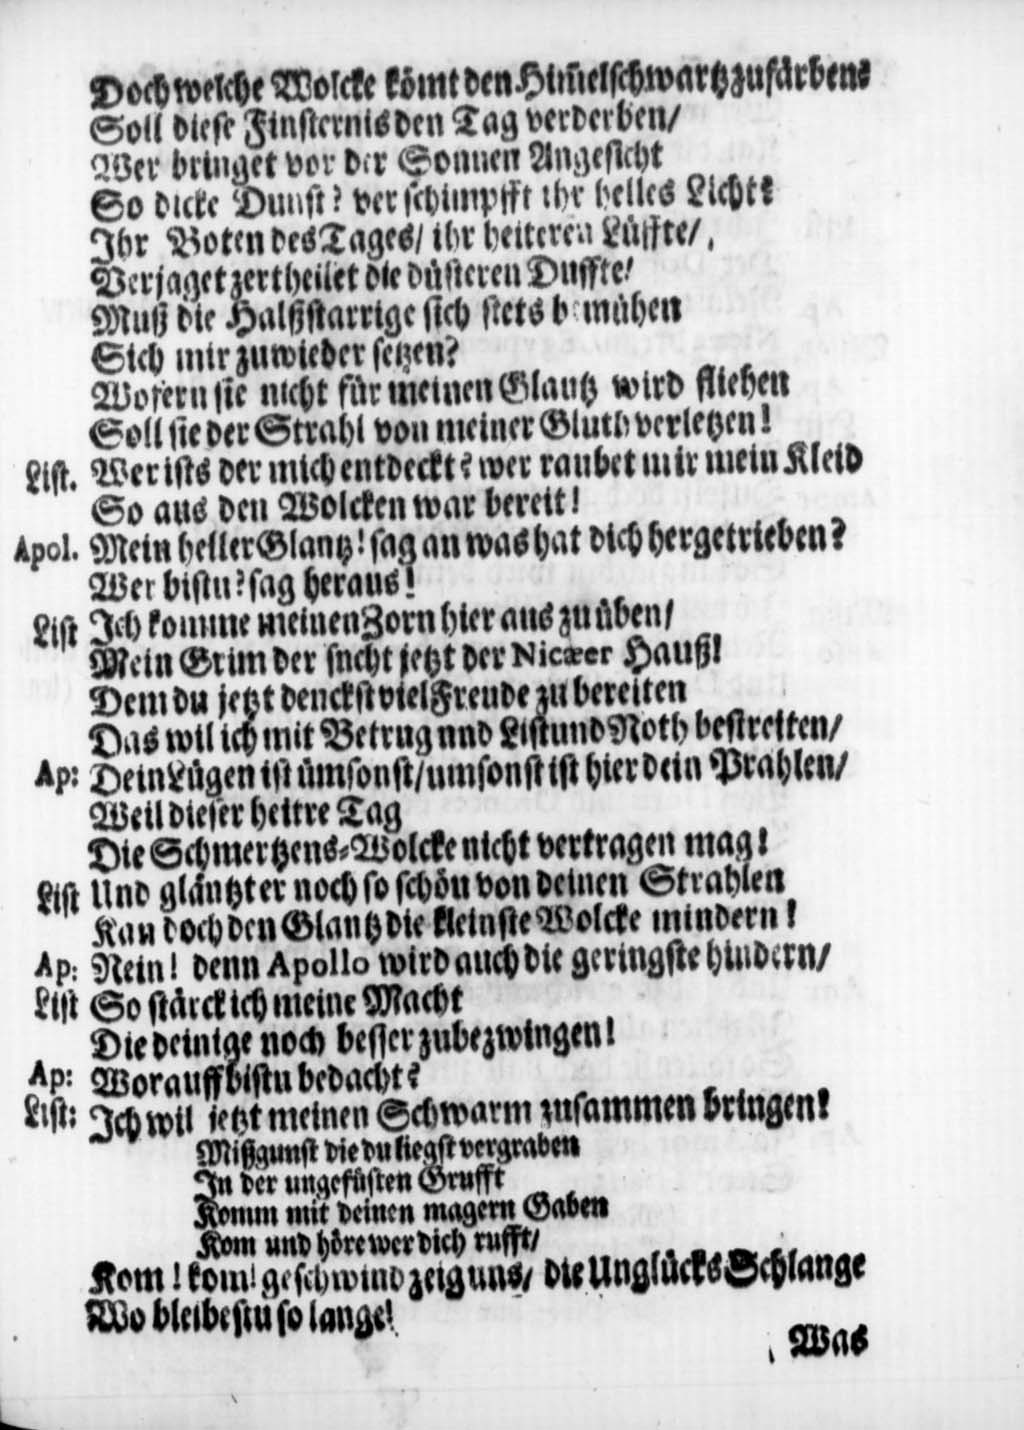 Doch welche Wolcke kömt den Him̃elschwartzzufärben?
Soll diese Finsternis den Tag verderben/
Wer bringet vor der Sonnen Angesicht
So dicke Dunst? verschimpfft ihr helles Licht?
Ihr Boten des Tages/ ihr heiteren Lüffte/
Verjaget zertheilet die düsteren Duffte/
Muß die Halßstarrige sich stets bemühen
Sich mir zuwieder setzen?
Wofern sie nicht für meinen Glantz wird fliehen
Soll sie der Strahl von meiner Gluth verletzen!
List. Wer ists der mich entdeckt? wer raubet mir mein Kleid
So aus den Wolcken war bereit!
Apol. Mein heller Glantz! sag an was hat dich hergetrieben?
Wer bistu? sag heraus!
List Ich komme meinen Zorn hier aus zu üben/
Mein Grim der sucht jetzt der Nicæer Hauß!
Dem du jetzt denckst viel Freude zu bereiten
Das wil ich mit Betrug und List und Noth bestreiten/
Ap: Dein Lügen ist ümsonst/ umsonst ist hier dein Prahlen/
Weil dieser heitre Tag
Die Schmertzens-Wolcke nicht vertragen mag!
List Und gläntzt er noch so schön von deinen Strahlen
Kan doch den Glantz die kleinste Wolcke mindern!
Ap: Nein! denn Apollo wird auch die geringste hindern/
List So stärck ich meine Macht
Die deinige noch besser zubezwingen!
Ap: Worauff bistu bedacht?
List: Ich wil jetzt meinen Schwarm zusammen bringen!
Mißgunst die du liegst vergraben
In der ungefüsten Grufft
Komm mit deinen magern Gaben
Kom und höre wer dich rufft/
Kom! kom! geschwind zeig uns/ die Unglücks Schlange
Wo bleibestu so lange!
Was